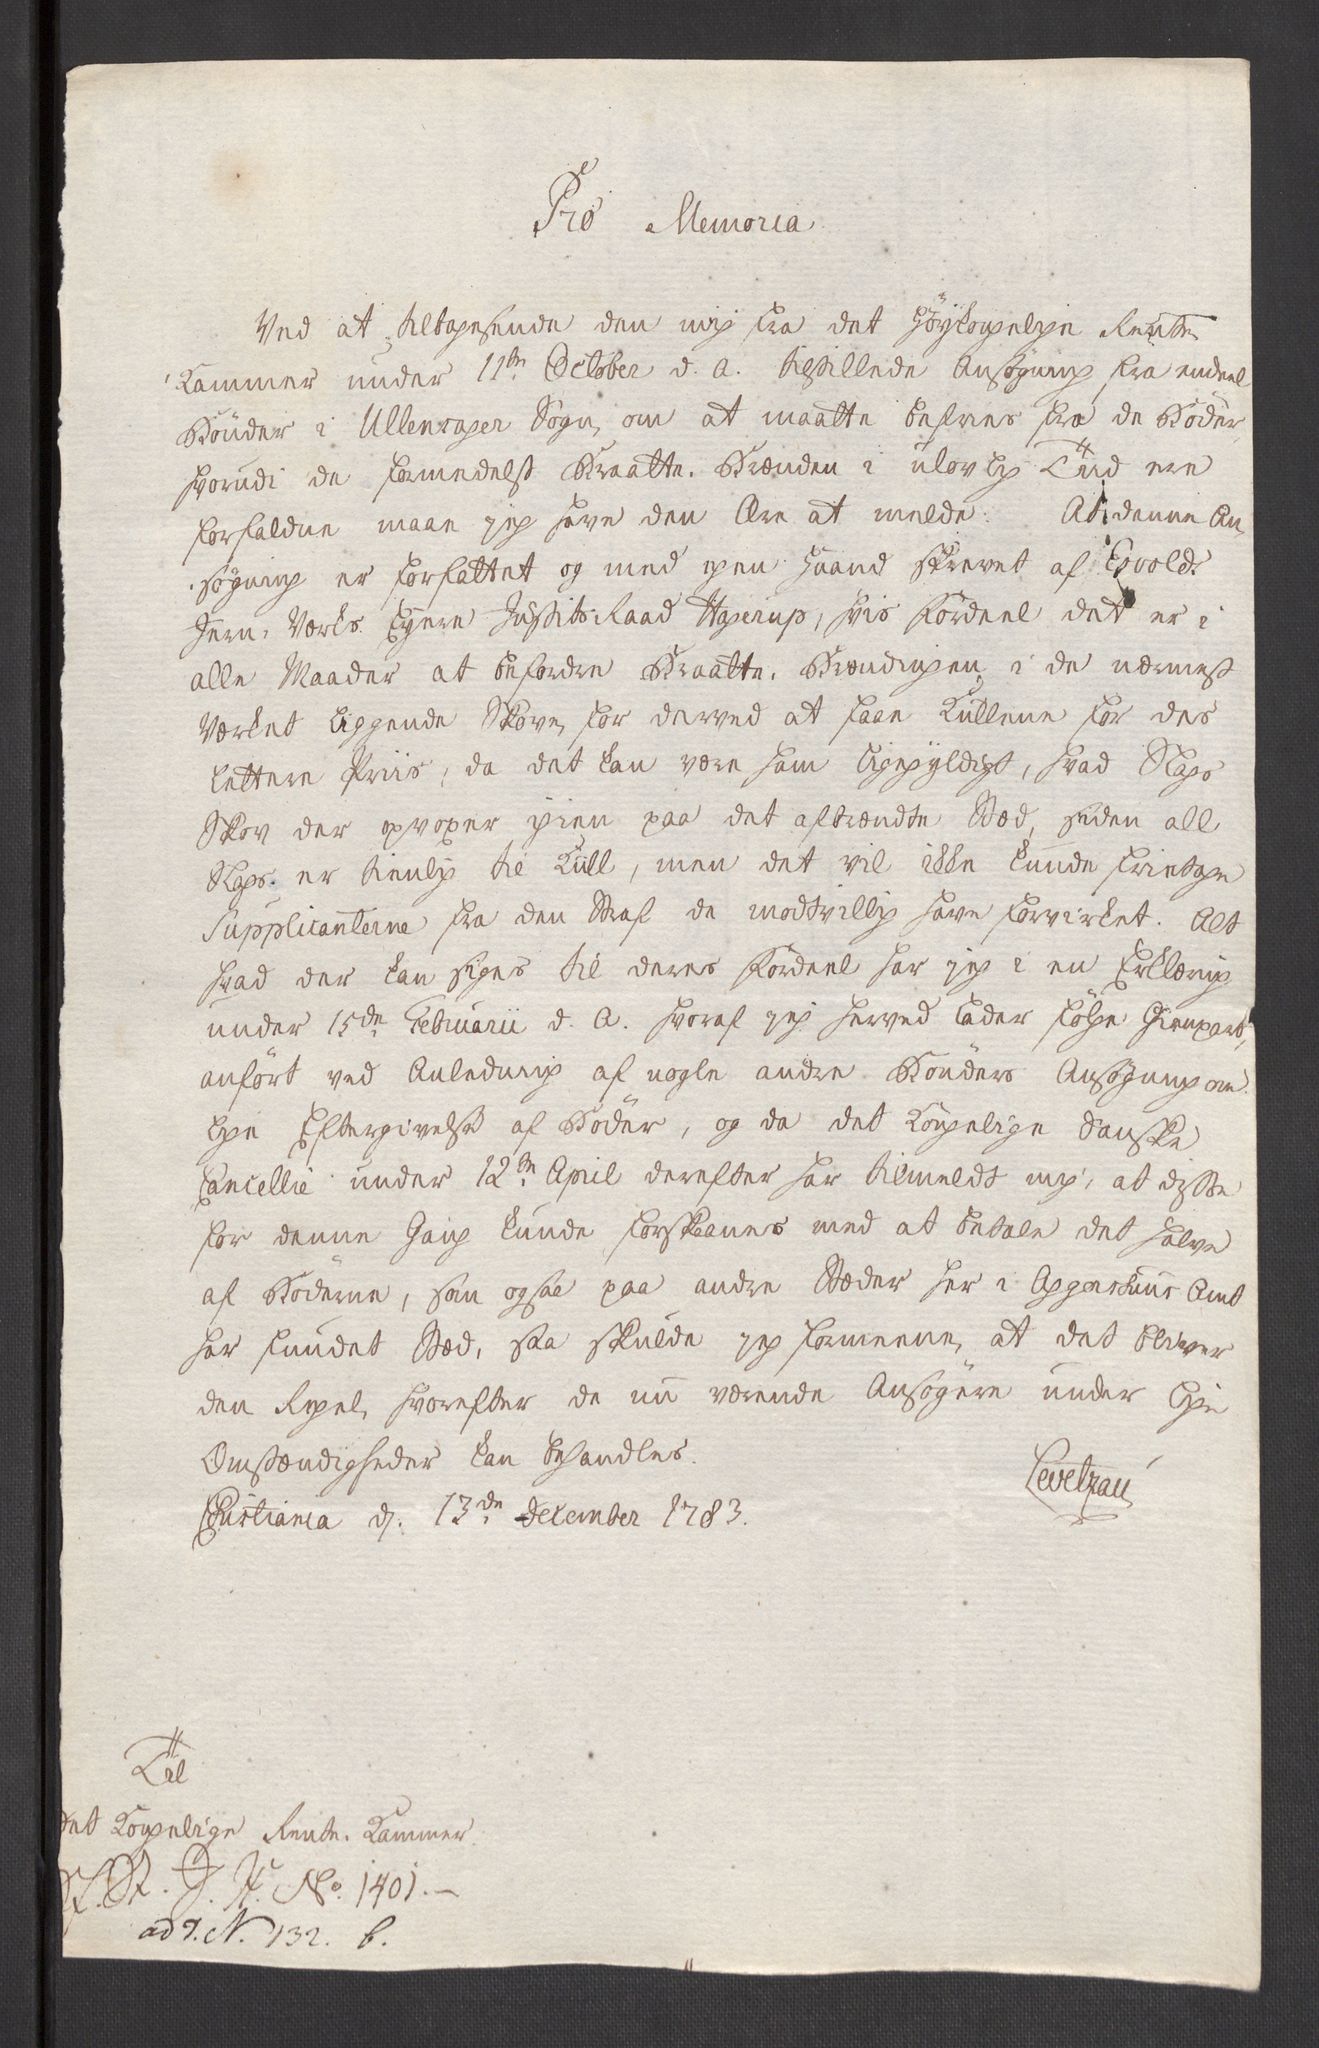 Pro Memoria
Ved at tilbagesende den mig fra det Höykongelige Rente
Kammer under 11te October d. A. tilstillede Ansøgning fra endeel
Bönder i Ullensager Sogn, om at maatte befries fra de Böder,
hvorudi de formedelst Braatte-Brænden i ulovlig Tiid ere
forfaldne maae jeg have den Ære at melde: At denne An-
søgning er forfattet og med egen Haand skrevet af Eydvolds
Jern-Værks Eyere Justits-Raad Hagerup, hvis Fordeel det er i
alle Maader at befordre Braatte-Brændingen i de nærmest
Værket liggende Skove, for derved at faae Kullene for des
lettere Priis, da det kan være ham ligegyldigt, hvad Slags
Skov der opvoxer igien paa det afbrændte Sted, siden all
Slags er tienlig til Kull, men det vil ikke kunde fritage
Supplicanterne fra den Straf de modtvillig have forvirket. Alt
hvad der kan siges til deres Fordeel har jeg i en Erklæring
under 15de Februarii d. A. hvoraf jeg herved lader følge Gienpart,
anført ved Anledning af nogle andre Bönders Ansøgning om
lige Eftergivelse af Böder, og da det Kongelige danske
Cancellie under 12te April derefter har tilmeldt mig, at disse
for denne Gang kunde forskaanes med at betale det halve
af Böderne, som ogsaa paa andre Stæder her i Aggershuus Amt
har fundet Sted, saa skulde jeg formeene, at det bliver
den Regel, hvorefter de nu værende Ansøgere under lige
Omstændigheder kan behandles.
Christiania d. 13de December 1783.
Levetzau
Til
det Kongelige Rente-Kammer.
No. 1401.
ad J. N. 132. b.